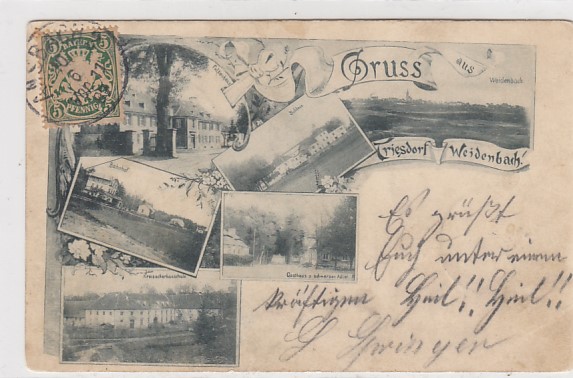 BAYERN
5 5
PFENNIG
Gruss aus
Weidenbach
Triesdorf Weidenbach.
Bahnhof
Kreisackerbauschule
Gasthaus z. schwarzen Adler
Es grüßt
Euch unter einem
kräftigen Heil!! Heil!!
G. Gyringer